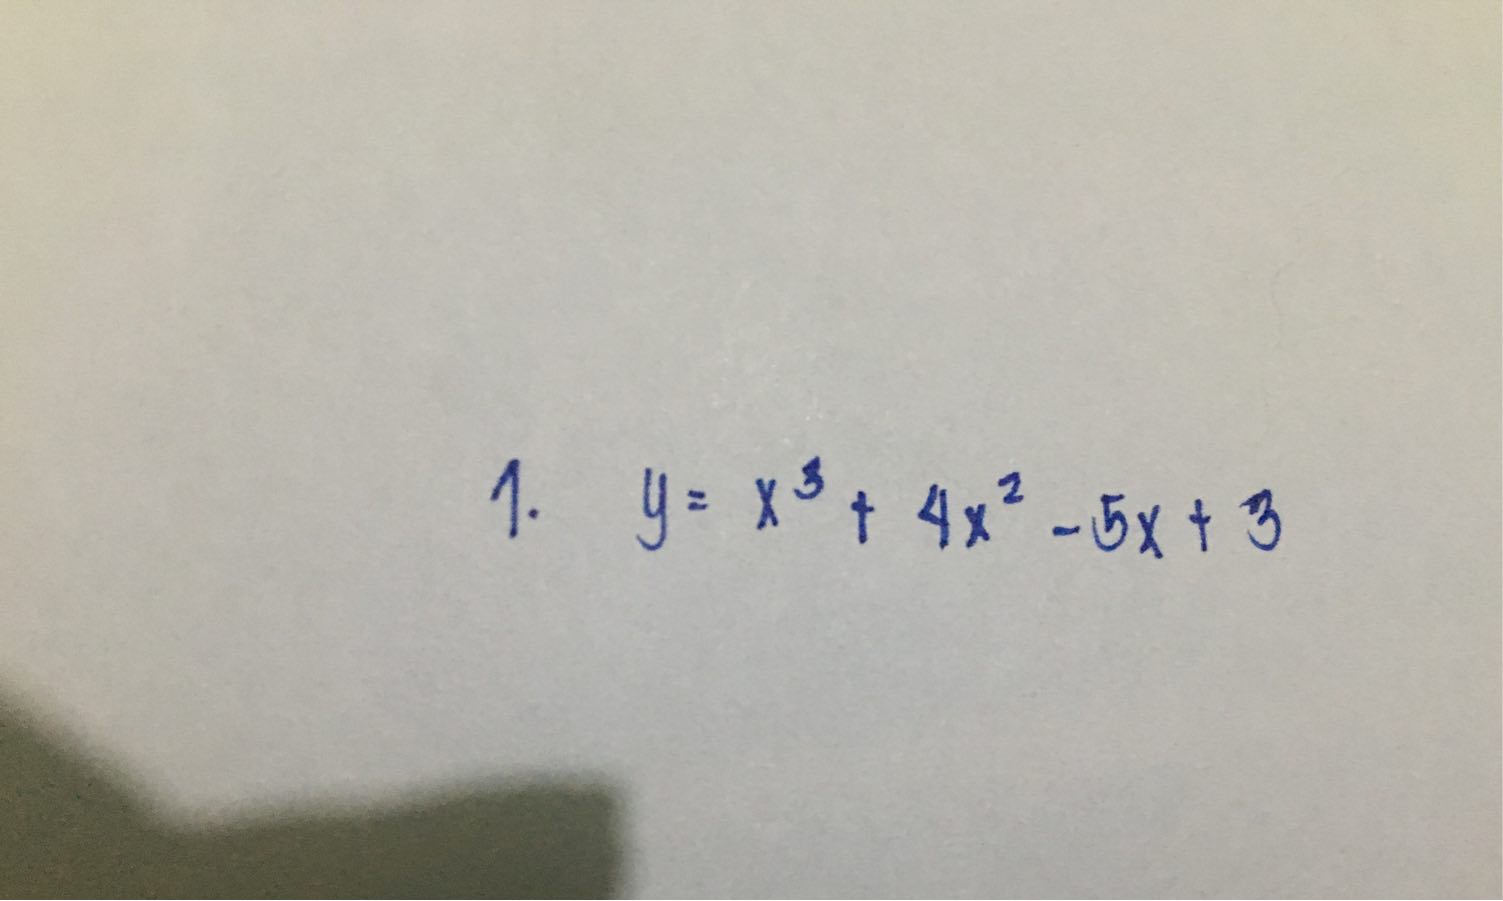 1. y = x³ + 4x² - 5x + 3